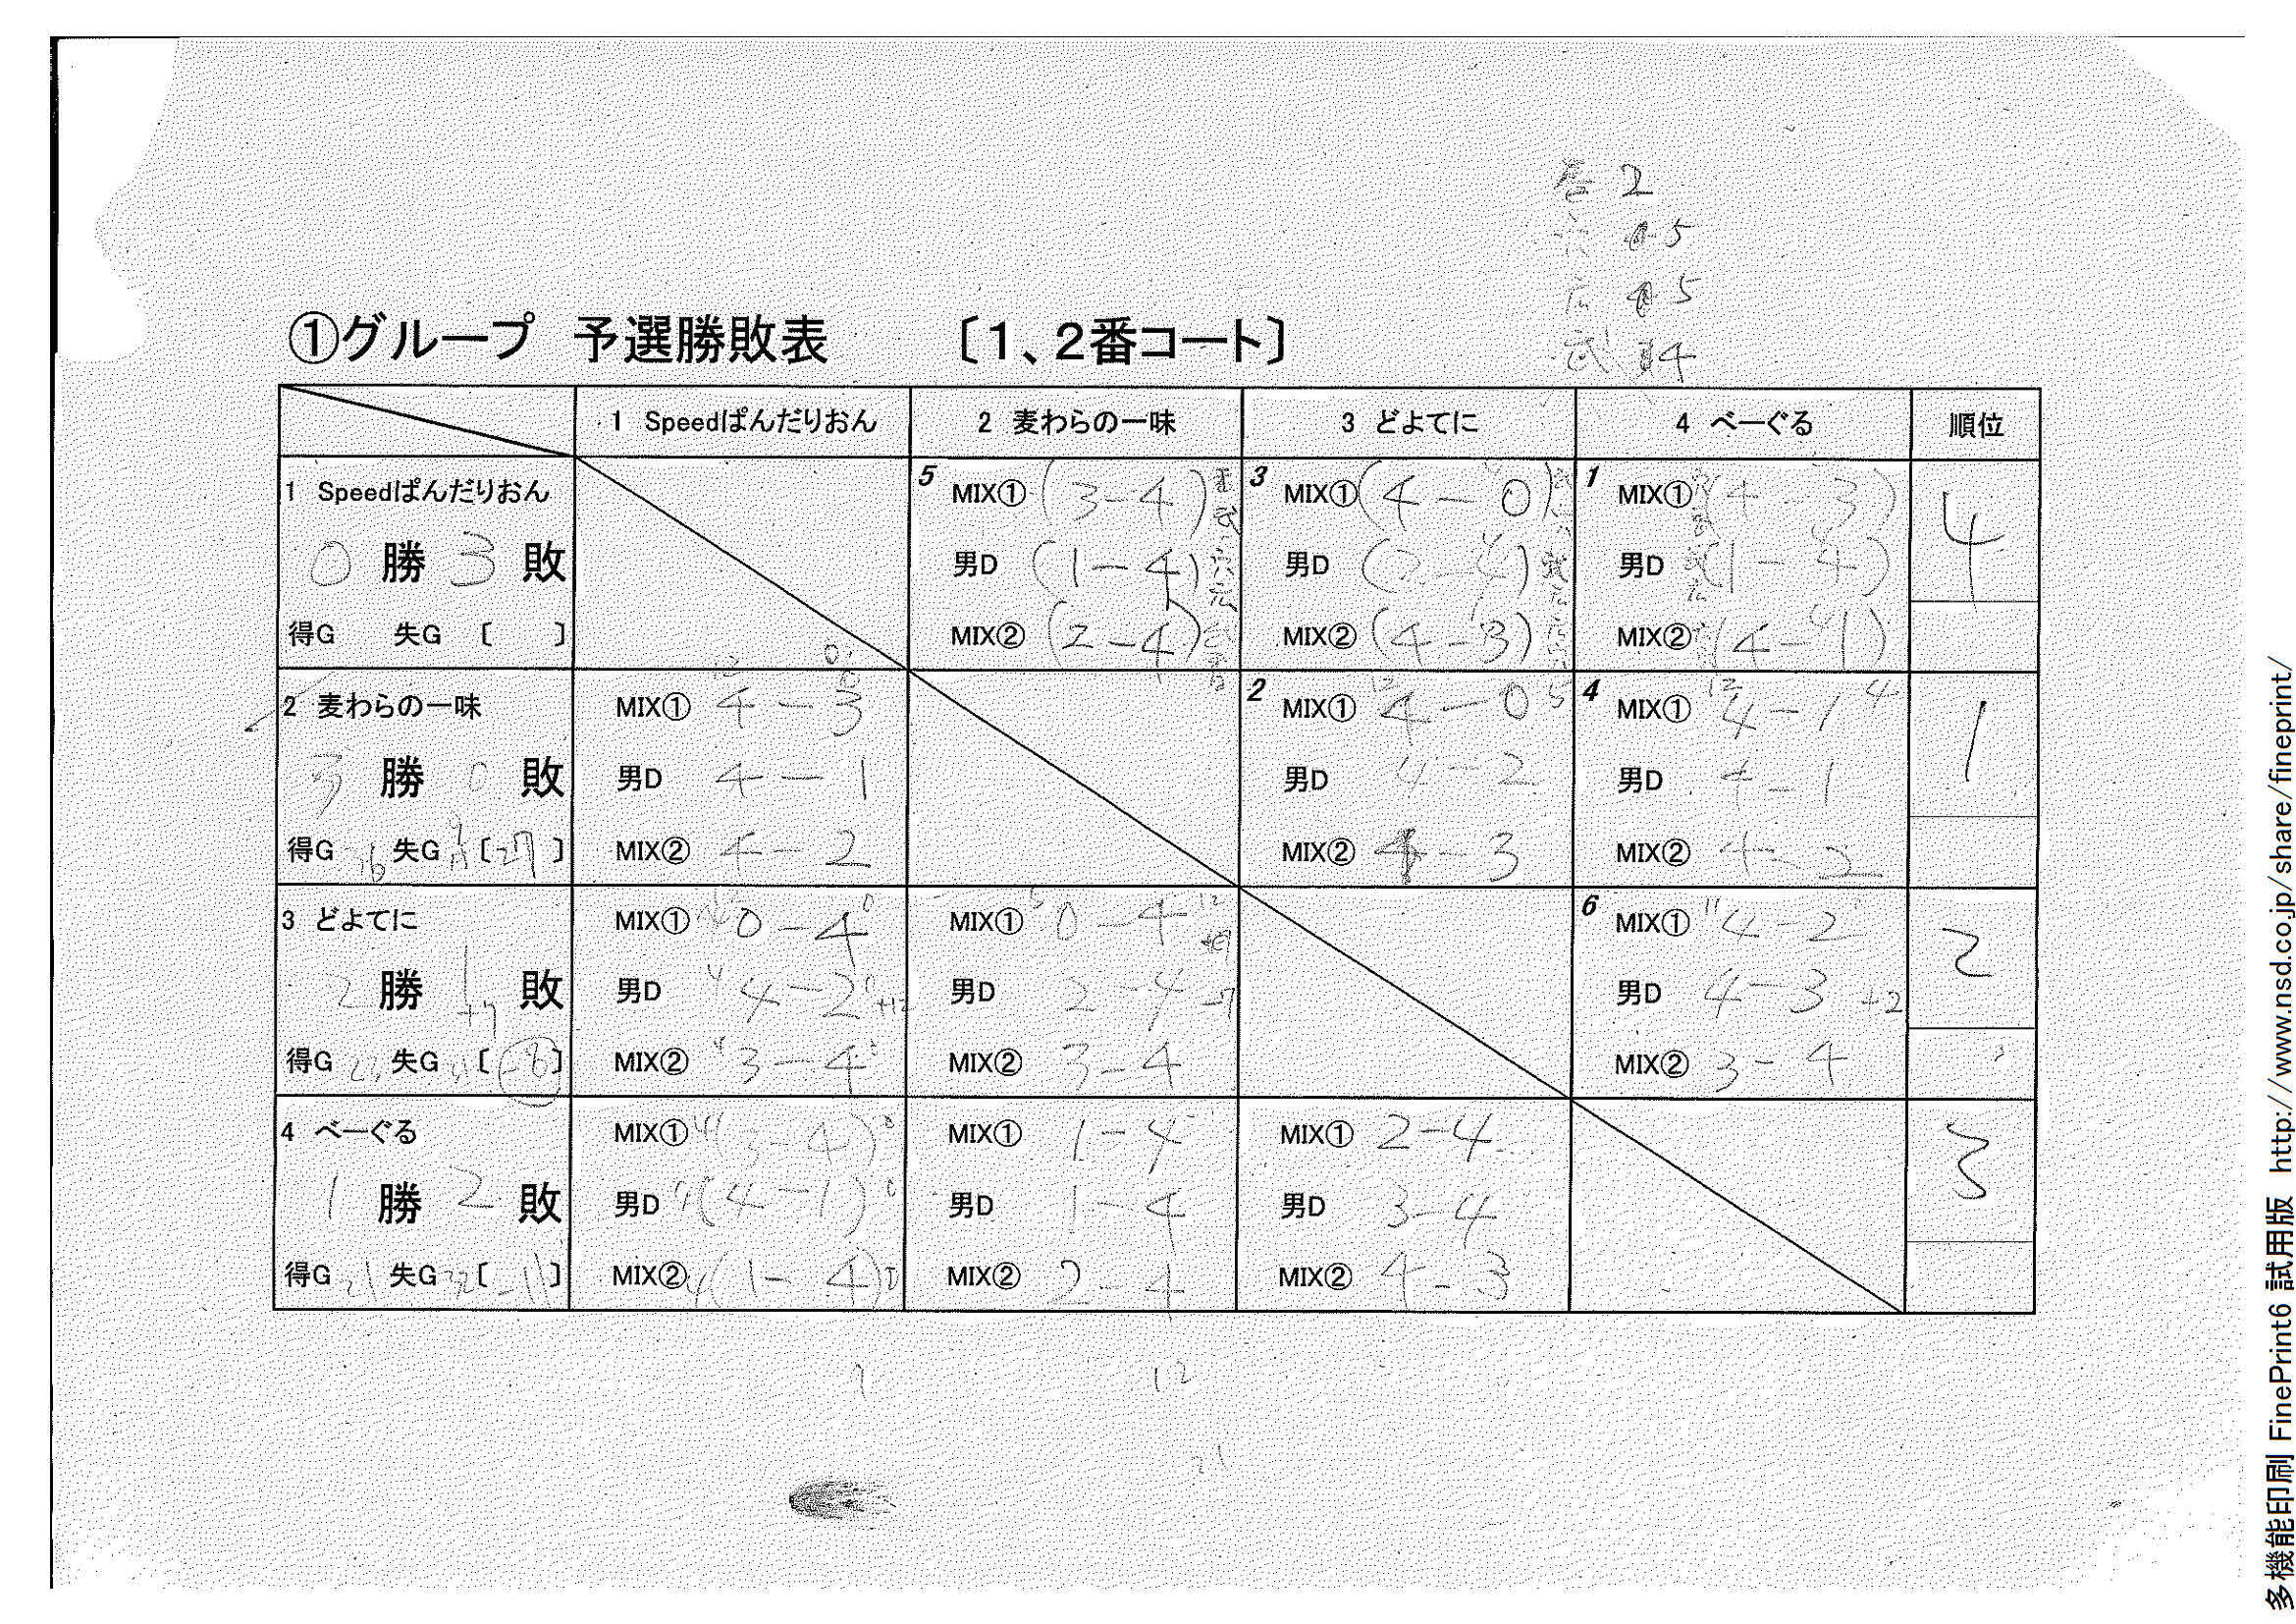 巻 2
穴 5
広 5
武 4
①グループ 予選勝敗表 〔1、2番コート〕
1 Speedぱんだりおん 2 麦わらの一味 3 どよてに 4 べーぐる 順位
1 Speedぱんだりおん
0 勝 3 敗
得G 失G 〔 〕
5 MIX① (3-4)
男D (1-4)
MIX② (2-4)
3 MIX① (4-0)
男D (2-4)
MIX② (4-3)
1 MIX① (4-3)
男D (1-4)
MIX② (4-1)
4
2 麦わらの一味
3 勝 0 敗
得G 36 失G 〔27〕
MIX① 4-3
男D 4-1
MIX② 4-2
2 MIX① 12 4-0 5
男D 4-2
MIX② 4-3
4 MIX① 12 4-1 4
男D 4-1
MIX② 4-2
1
3 どよてに
2 勝 1 敗
+7
得G 失G 〔-8〕
MIX① 0-4
男D 4-2 +12
MIX② 3-4
MIX① 5 0-4 12
男D 2-4 -7
MIX② 3-4
6 MIX① 11 4-2
男D 4-3 +2
MIX② 3-4
2
4 べーぐる
1 勝 2 敗
得G 21 失G 32 〔-11〕
MIX① (3-4)
男D (4-1)
MIX② (1-4)
MIX① 1-4
男D 1-4
MIX② 2-4
MIX① 2-4
男D 3-4
MIX② 4-3
3
12
21
多機能印刷 FinePrint6 試用版 http://www.nsd.co.jp/share/fineprint/